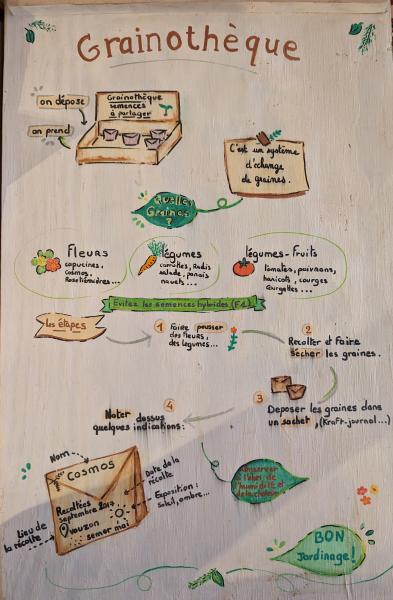 Grainothèque
on dépose
on prend
Grainothèque
semences
à partager
C'est un système
d'échange
de graines.
Quelles
Graines
?
Fleurs
capucines,
cosmos,
Rose trémières...
légumes
carottes, Radis
salade, panais
navets...
légumes-fruits
tomates, poivrons,
haricots, courges
courgettes...
Evitez les semences hybrides (F1)
les étapes
1
Faire pousser
des fleurs,
des légumes...
2
Récolter et faire
sécher les graines.
3
Déposer les graines dans
un sachet, (Kraft-journal...)
4
Noter dessus
quelques indications:
Nom
Cosmos
Date de la
récolte
Récoltées
septembre 2017
Vouzon
semer mai
Exposition:
Soleil, ombre...
Lieu de
la récolte
Conserver
à l'abri de
l'humidité et
de la chaleur
BON
Jardinage!